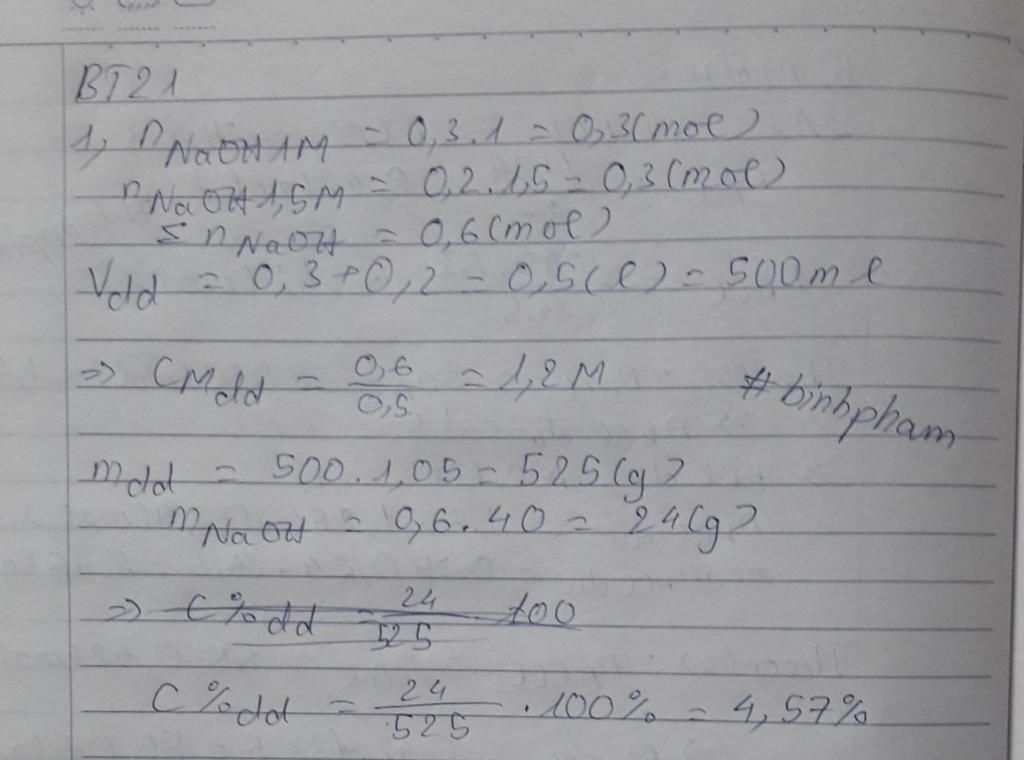 BT21
1, nNaOH 1M = 0,3.1 = 0,3(mol)
nNaOH 1,5M = 0,2.1,5 = 0,3(mol)
Σ nNaOH = 0,6(mol)
Vdd = 0,3+0,2 = 0,5(l) = 500ml
=> CMdd = 0,6/0,5 = 1,2M #binhpham
mdd = 500.1,05 = 525(g)
mNaOH = 0,6.40 = 24(g)
=> C%dd = 24/525 100
C%dd = 24/525 .100% = 4,57%